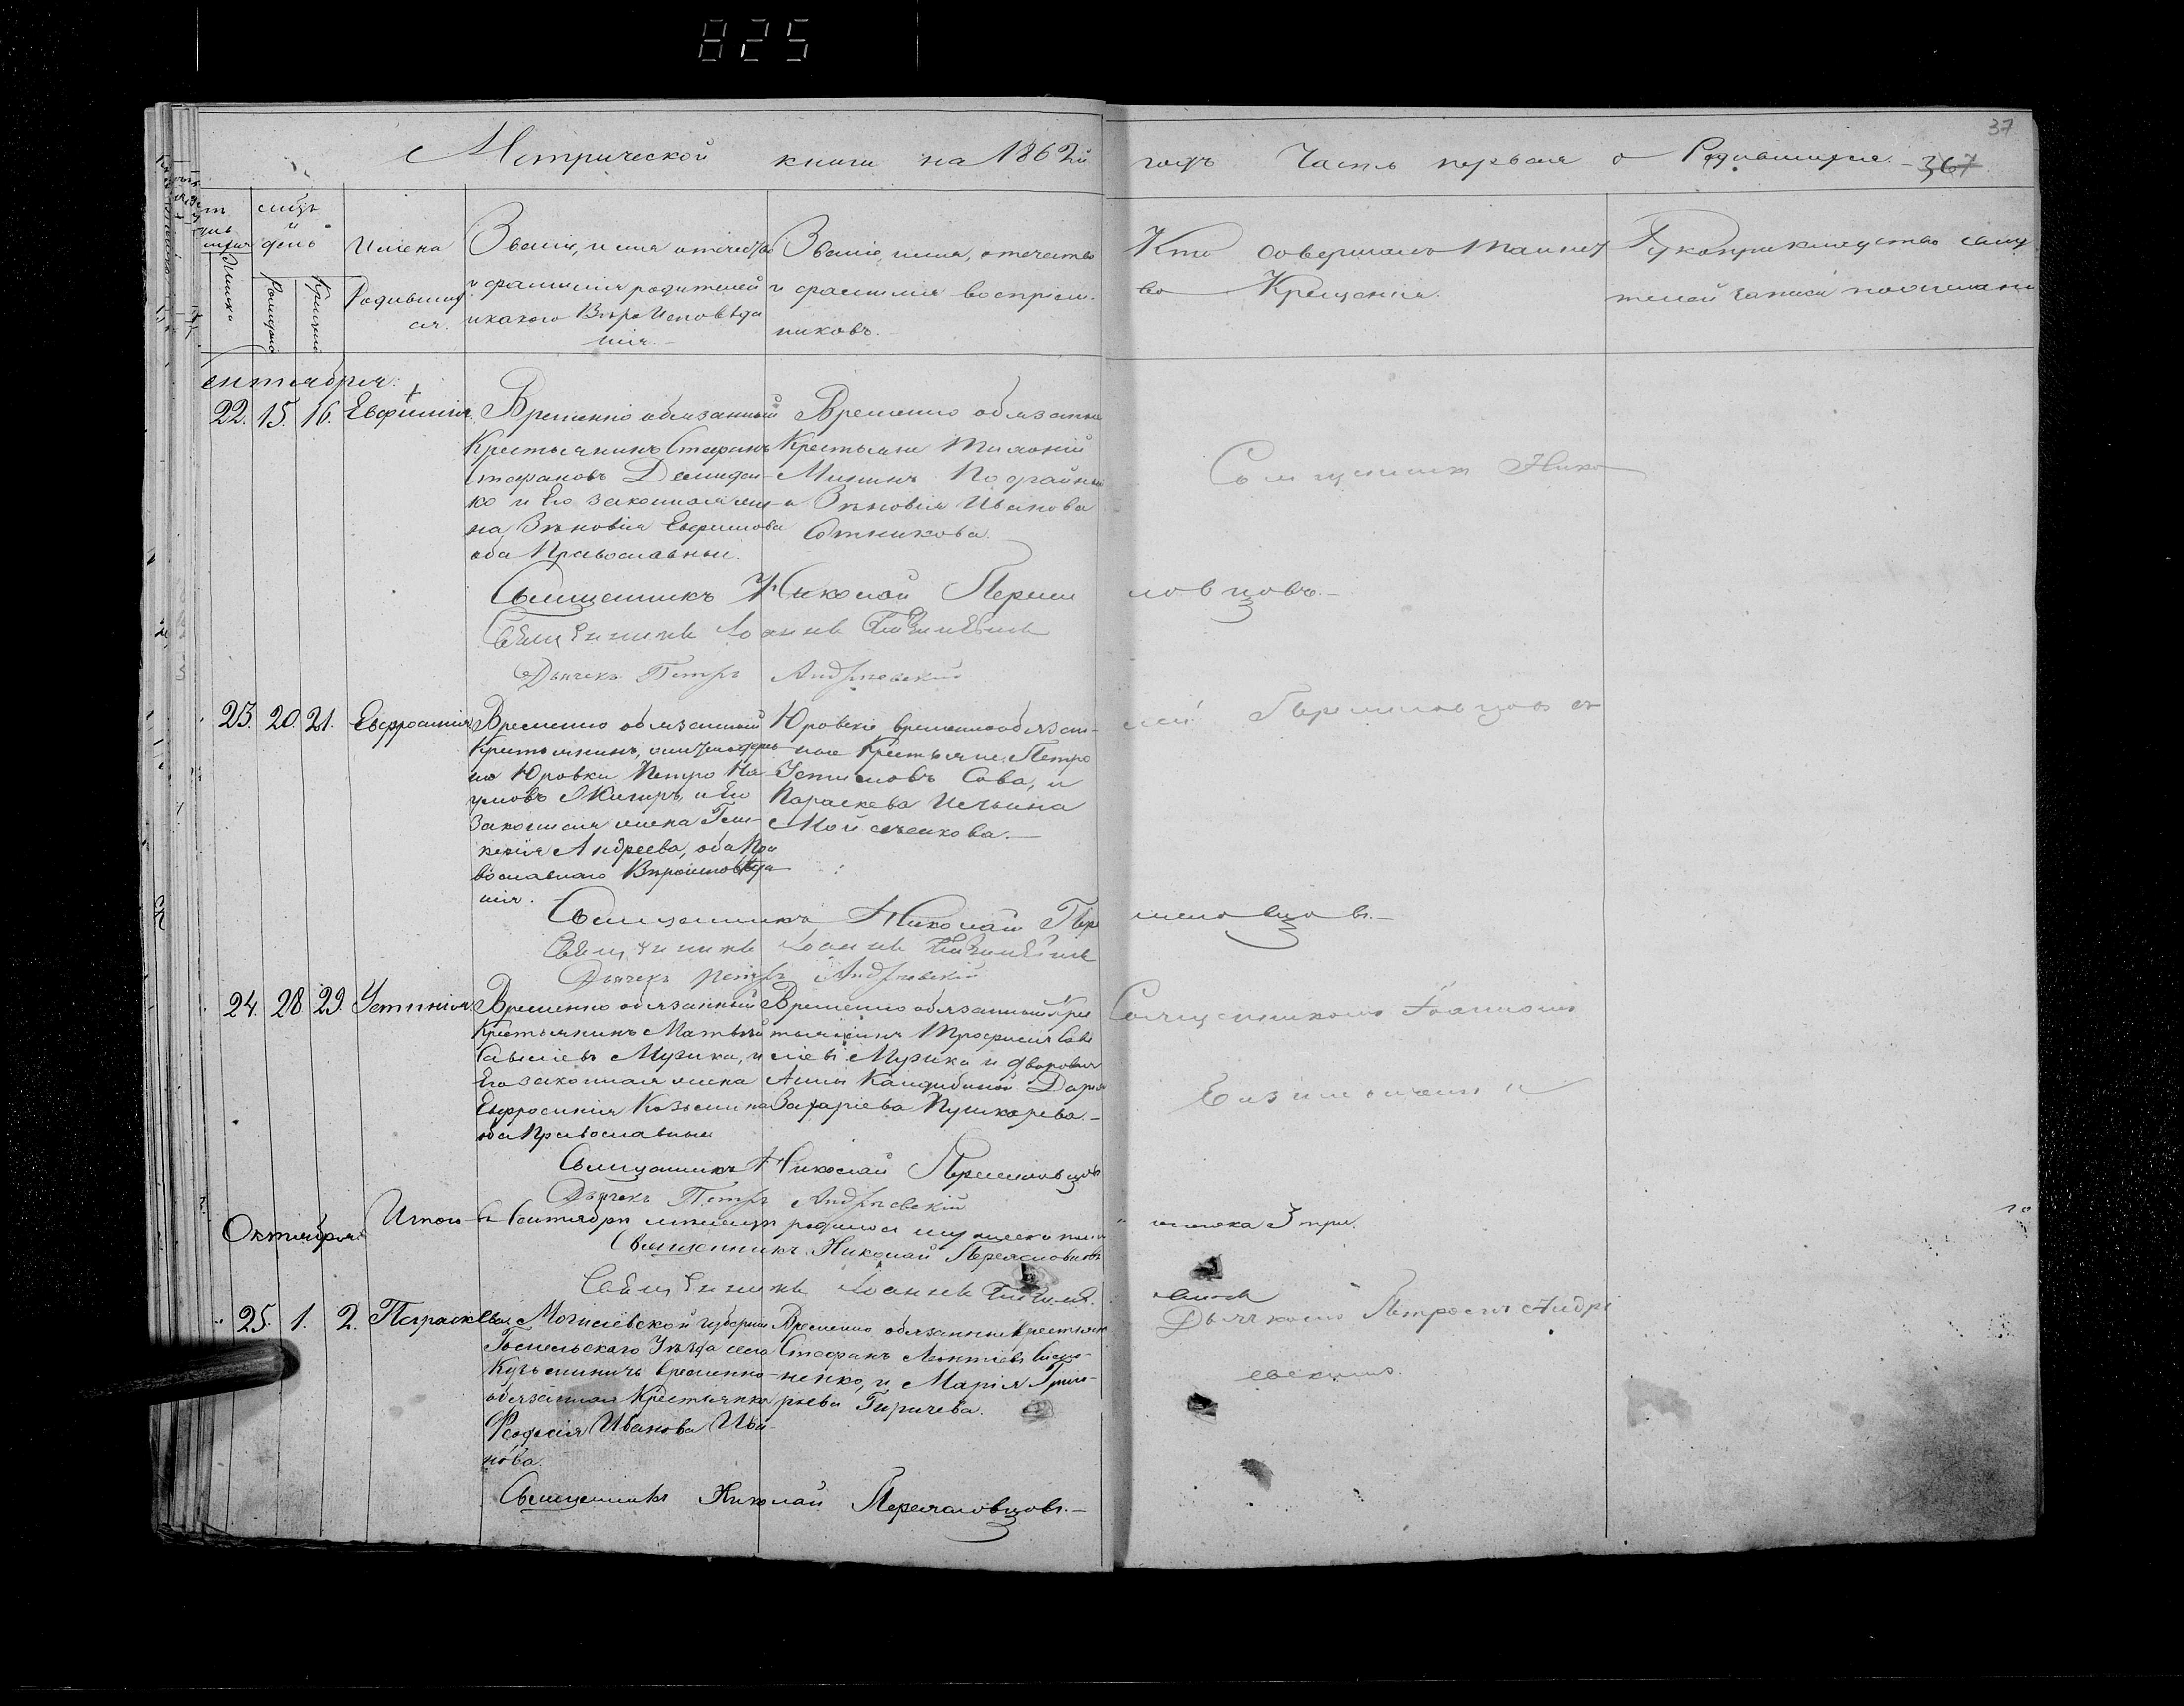 825
37
Метрической книги на 1862й годъ Часть первая о Родившихся. 367
мцъ
й
день
Женска
Рожденія
Крещенія
Имена
Родившихся.
Званіе, имя отечество
и фамилія родителей
и какого Вѣроисповѣда
нія.
Званіе, имя, отечество
и фамилія воспріем.
никовъ.
Кто совершалъ таинст
во Крещенія.
Рукоприкладство свиде
телей записи по желанію
Сентября:
22. 15. 16. Евфимія.
Временно обязанный
Крестьянинъ Стефанъ
Стефановъ Демиден-
ко и Его законная же-
на Зѣновія Ефимова
оба Православные.
Временно обязаные
Крестьяне Тимофій
Мининъ Подгайный
и Зѣновія Иванова
Сотникова.
Священникъ Нико
Священникъ Николай Переяс ловцовъ.
Священникъ Іоаннъ
Дьячекъ Петръ Андріевскій
23. 20. 21. Евфросинія
Временно обязанный
Крестьянинъ, дерев
ни Юровки Петро На
умовъ Жигирь, и Его
Законная жена Гли-
керія Андреева, оба Пра
вославнаго Вѣроисповѣда
нія.
Юровски временнообязан-
ные Крестьяне, Петро
Устимовъ Сова, и
Параскева Ильина
Мойсѣенкова.
лай Переяславцовъ
Священникъ Николай Пере яславцовъ.
Священникъ Іоаннъ
Дьячекъ Петръ Андріевскій
24. 28 29. Устинія.
Временно обязанный
Крестьянинъ Матвѣй
Савеліевъ Музика, и
Его законная жена
Евфросинія Козьмина
оба Православные
Временно обязанный Крес
тьянинъ Трофимъ Саве
ліевъ Музика и дворовая
Анны Кандибиной Дарія
Захаріева Пушкарева.
Священникомъ Іоанномъ
Священникъ Николай Переясловцовъ
Дьячекъ Петръ Андріевскій
Итого въ Сентябрѣ мѣсяцѣ родилось женска 3 три.
Священникъ Николай Переясловцовъ
Октября
Священникъ Іоаннъ
25. 1. 2. Параскева
Могилевской губерніи
Гомельского Уѣзда села
Кузьминичь временно-
обязанная Крестьянка
Феодосія Иванова Ива-
нова.
Временно обязанные Крестьяне
Стефанъ Леонтіевъ Симо-
ненко, и Марія Григо-
рьева Гиричева.
Дьячкомъ Петромъ Андрі
евскимъ.
Священникъ Николай Переяславцовъ.